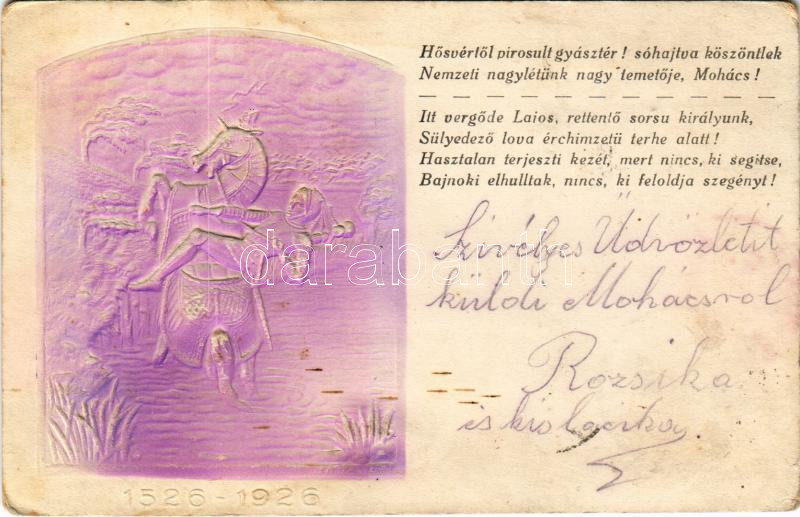 Hősvértől pirosult gyásztér ! sóhajtva köszöntlek
Nemzeti nagylétünk nagy temetője, Mohács !
Itt vergőde Laios, rettentő sorsu királyunk,
Sülyedező lova érchimzetü terhe alatt !
Hasztalan terjeszti kezét, mert nincs, ki segitse,
Bajnoki elhulltak, nincs, ki feloldja szegényt !
Szívélyes Üdvözletit
küldi Mohácsrol
Rozsika
és
1526 - 1926
darabanth